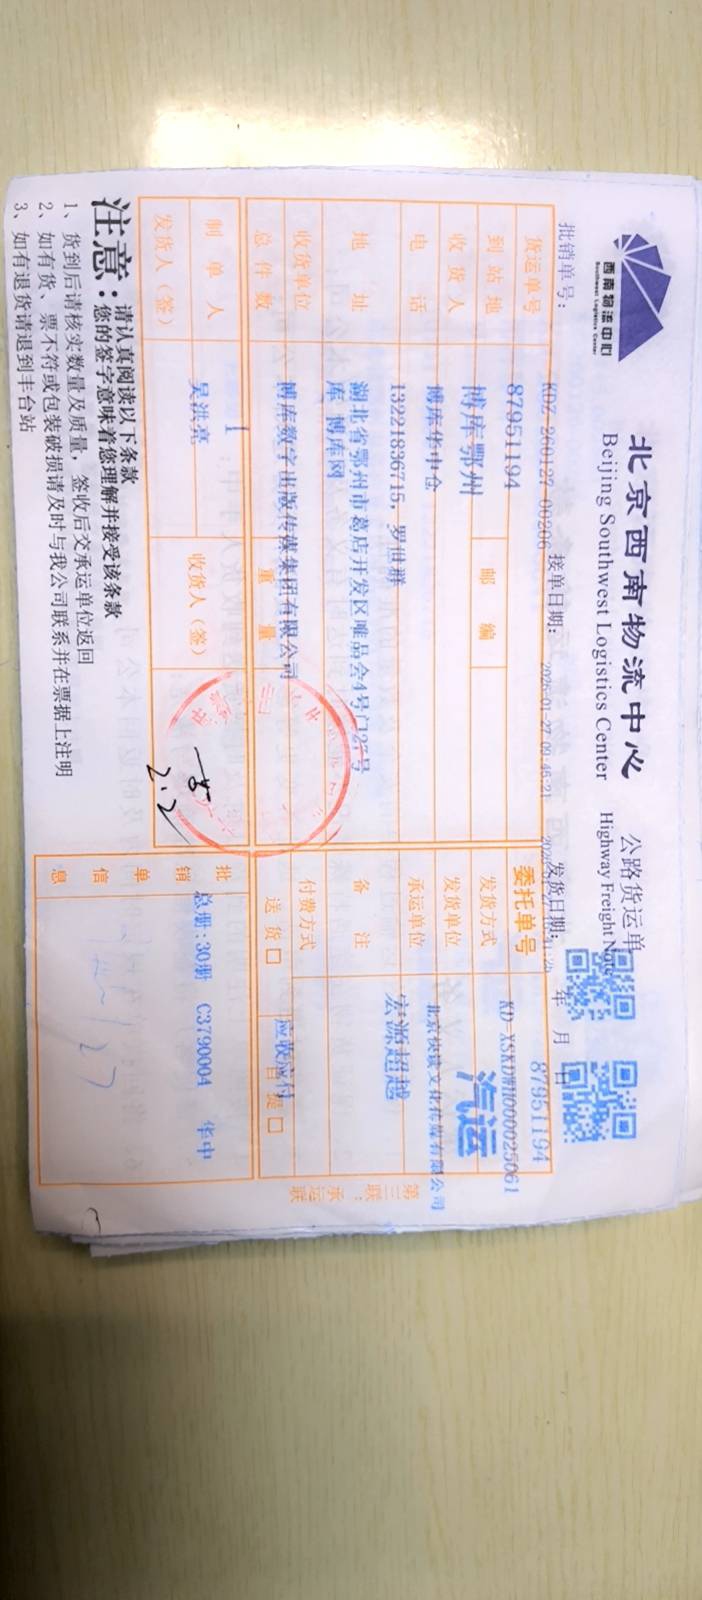 西南物流中心
Southwest Logistics Center
北京西南物流中心 公路货运单
Beijing Southwest Logistics Center Highway Freight Note
批销单号: KDZ-260127-00206 接单日期: 2026-01-27 09:46:21 发货日期: 年 月 日
货运单号 87951194 委托单号 87951194
KD-XSKDWH0000025061
到站地 博库鄂州 邮编 发货方式 汽运
收货人 博库华中仓 发货单位 北京快读文化传媒有限公司
电话 13221836715, 罗世群 承运单位 宏源超越
地址 湖北省鄂州市葛店开发区唯品会4号门27号
库 博库网 备注
收货单位 博库数字出版传媒集团有限公司 付费方式 应收应付
总件数 1 重量 送货□ 自提□
制单人 吴洪亮 收货人(签)
发货人(签)
2.2
批销单信息 总册:30册 C3790004 华中
第三联:承运联
注意:请认真阅读以下条款
您的签字意味着您理解并接受该条款
1、货到后请核实数量及质量,签收后交承运单位返回
2、如有货、票不符或包装破损请及时与我公司联系并在票据上注明
3、如有退货请退到丰台站